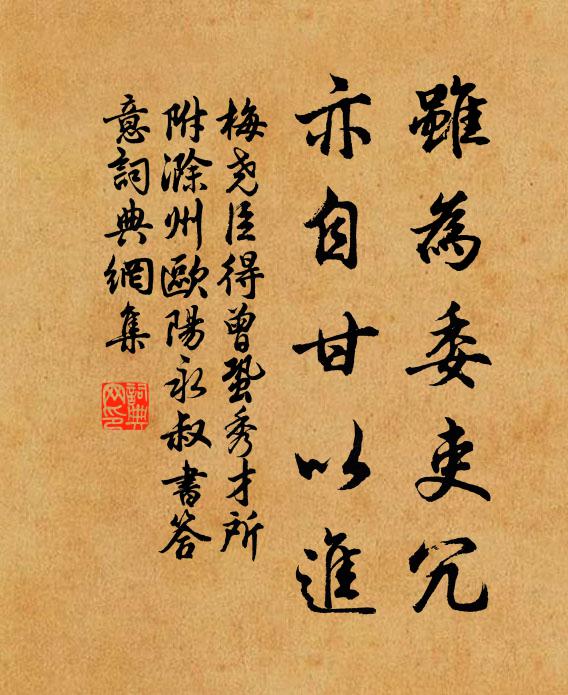 雖為委吏冗
亦自甘以進
梅堯臣得曾鞏秀才所
附滁州歐陽永叔書答
意詞典網集
詞典
网印